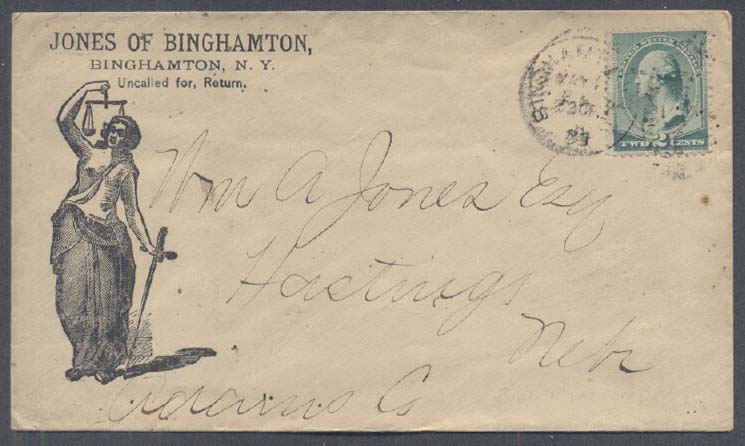 JONES OF BINGHAMTON,
BINGHAMTON, N. Y.
Uncalled for, Return.
UNITED STATES POSTAGE
TWO 2 CENTS
Wm A Jones Esq
Hastings
Nebr
Adams Co